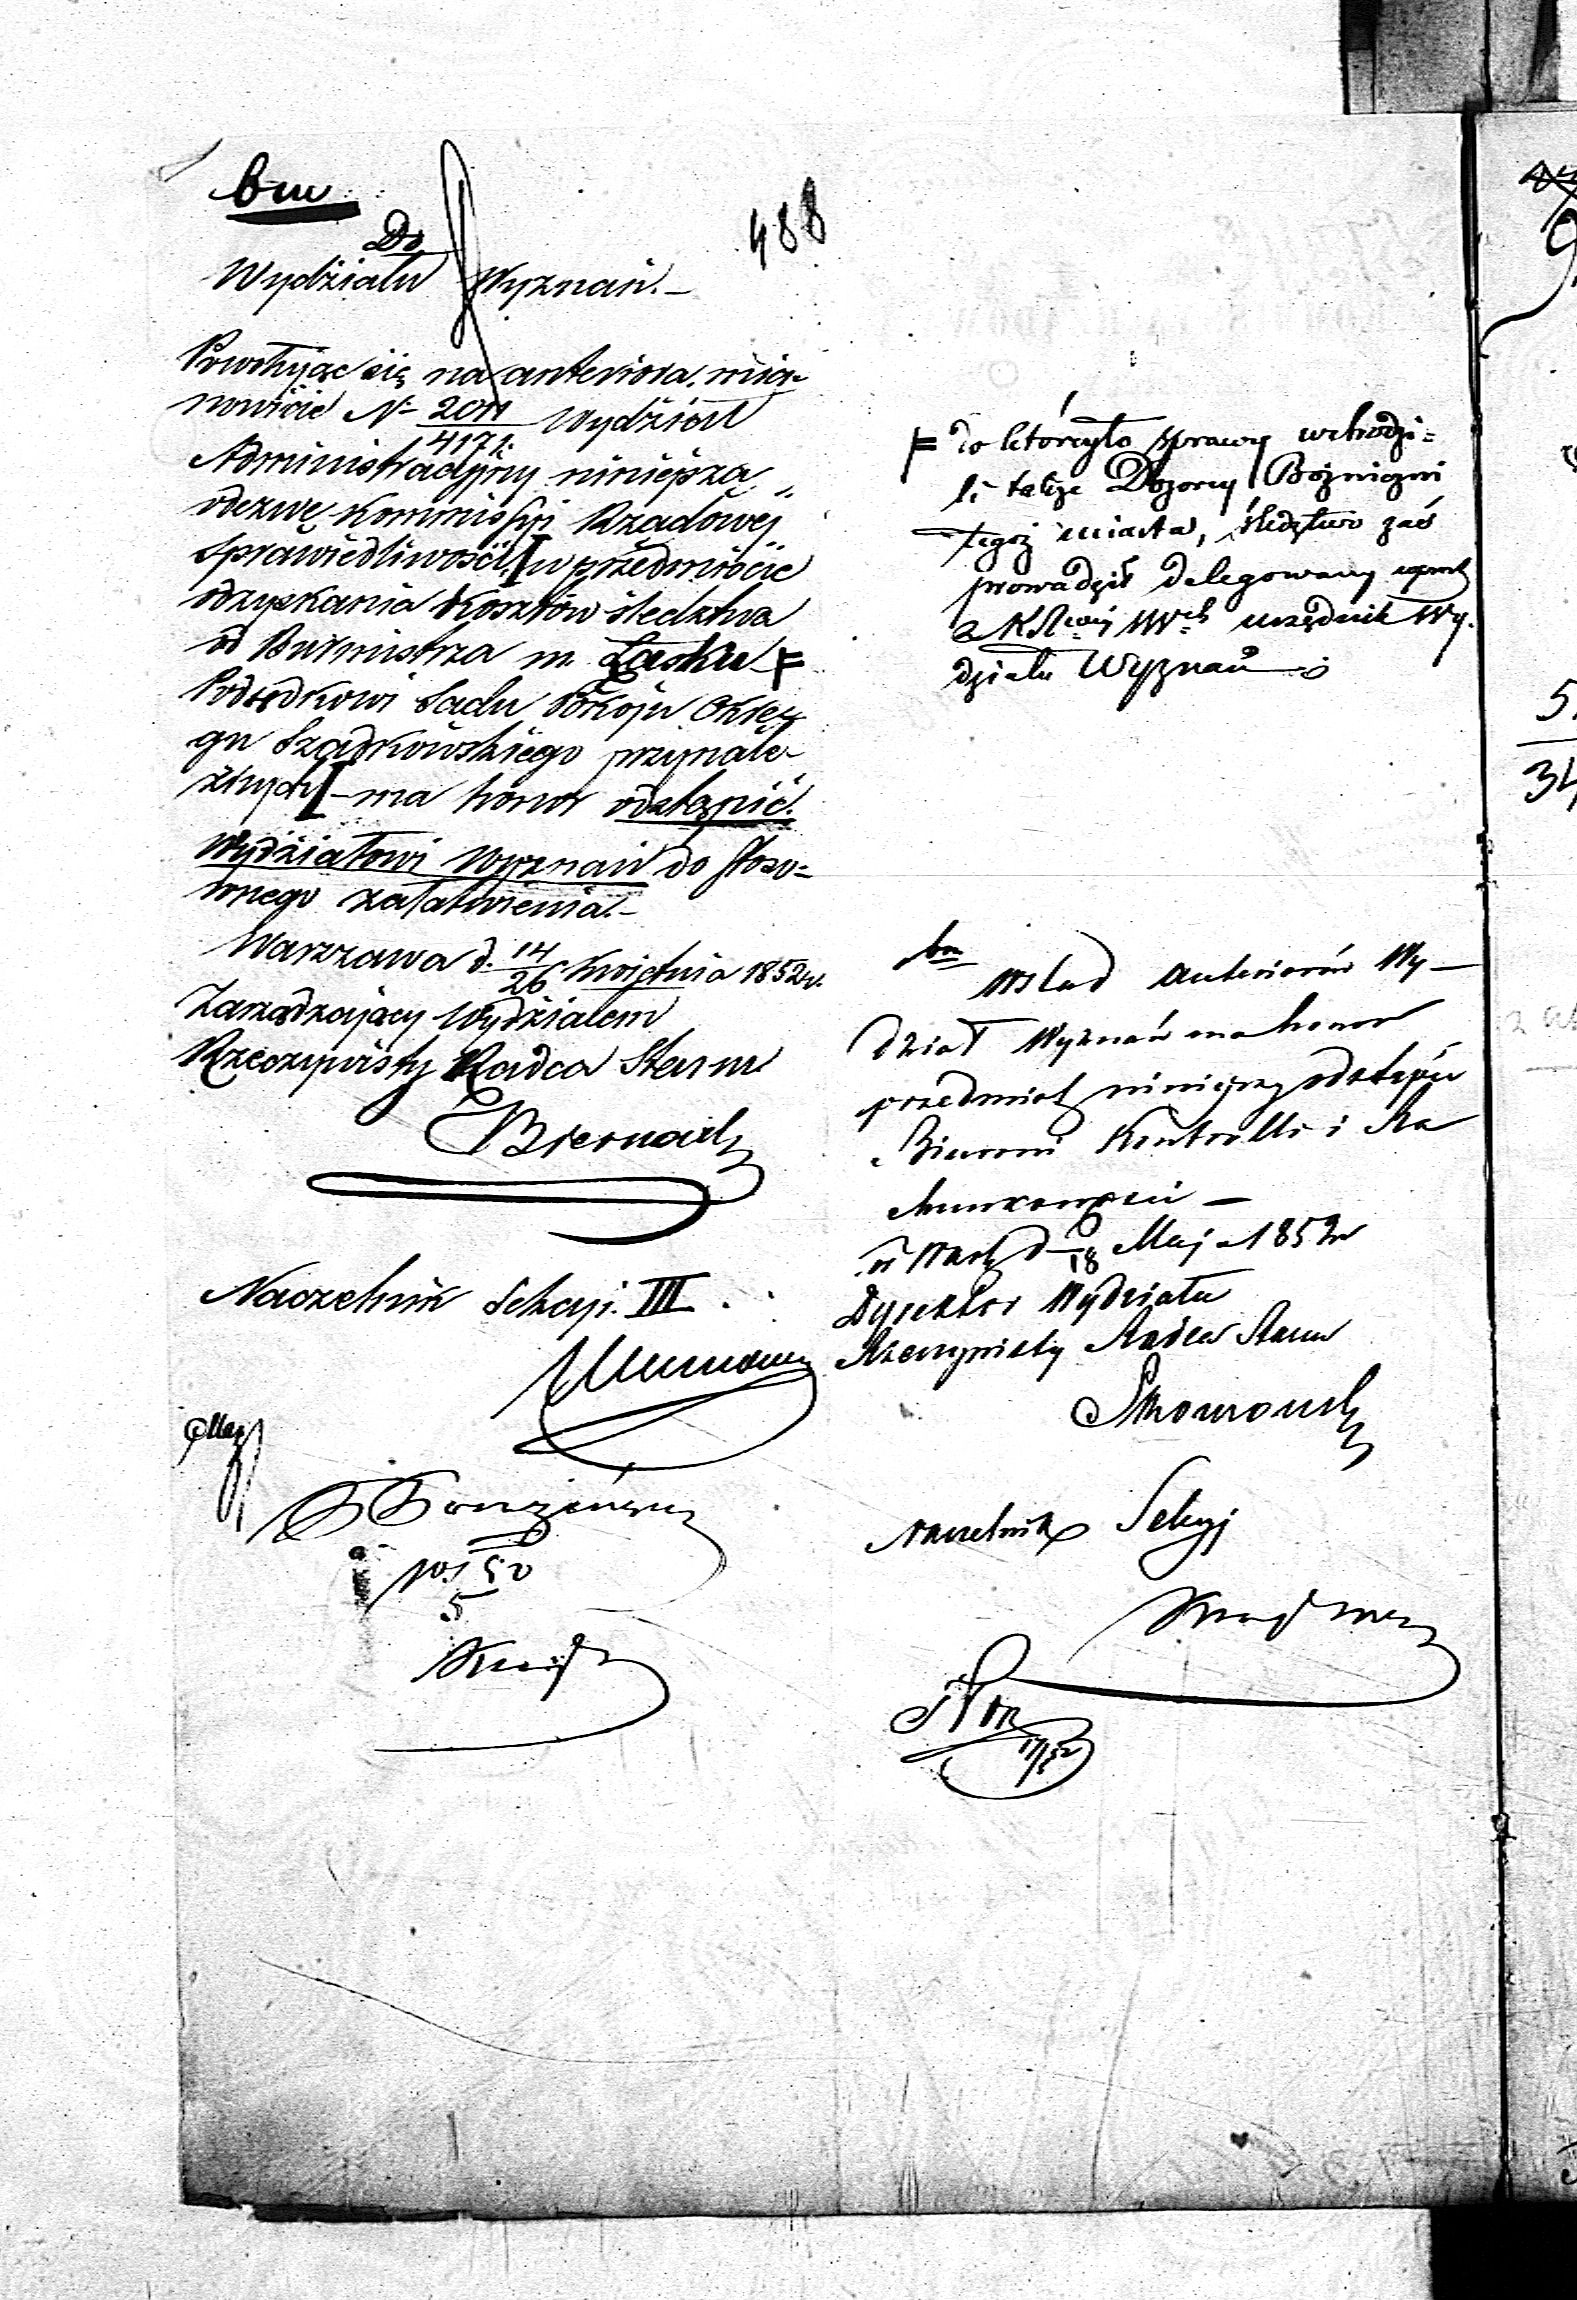 bm
488
Do
Wydziału Wyznań. –
Powołując się na anteriora, mia-
nowicie N. 2011/417 Wydział
Administracyjny niniejszą
odezwę Kommissyi Rządowej
Sprawiedliwości, w przedmiocie
odzyskania kosztów śledztwa
od Burmistrza m. Łasku
Podsędkowi Sądu Pokoju Okrę-
gu Szadkowskiego przynale-
żnych – ma honor odstąpić
Wydziałowi Wyznań do stoso-
wnego załatwienia. –
Warszawa d. 14/26 Kwietnia 1852 r.
Zarządzający Wydziałem
Rzeczywisty Radca Stanu
Naczelnik Sekcyi III.
do którejto sprawy wchodzi=
li także Dozorcy Bóżniczni
tegoż miasta, śledztwo zaś
prowadził delegowany
urzędnik Wy-
działu Wyznań
bm
W ślad anteriorów Wy-
dział Wyznań ma honor
przedmiot niniejszy odstąpić
Biurowi Kontrolli i Ra
chunkowości –
w Warsz d 6/18 Maja 1852 r
Dyrektor Wydziału
Rzeczywisty Radca Stanu
Naczelnik Sekcyi